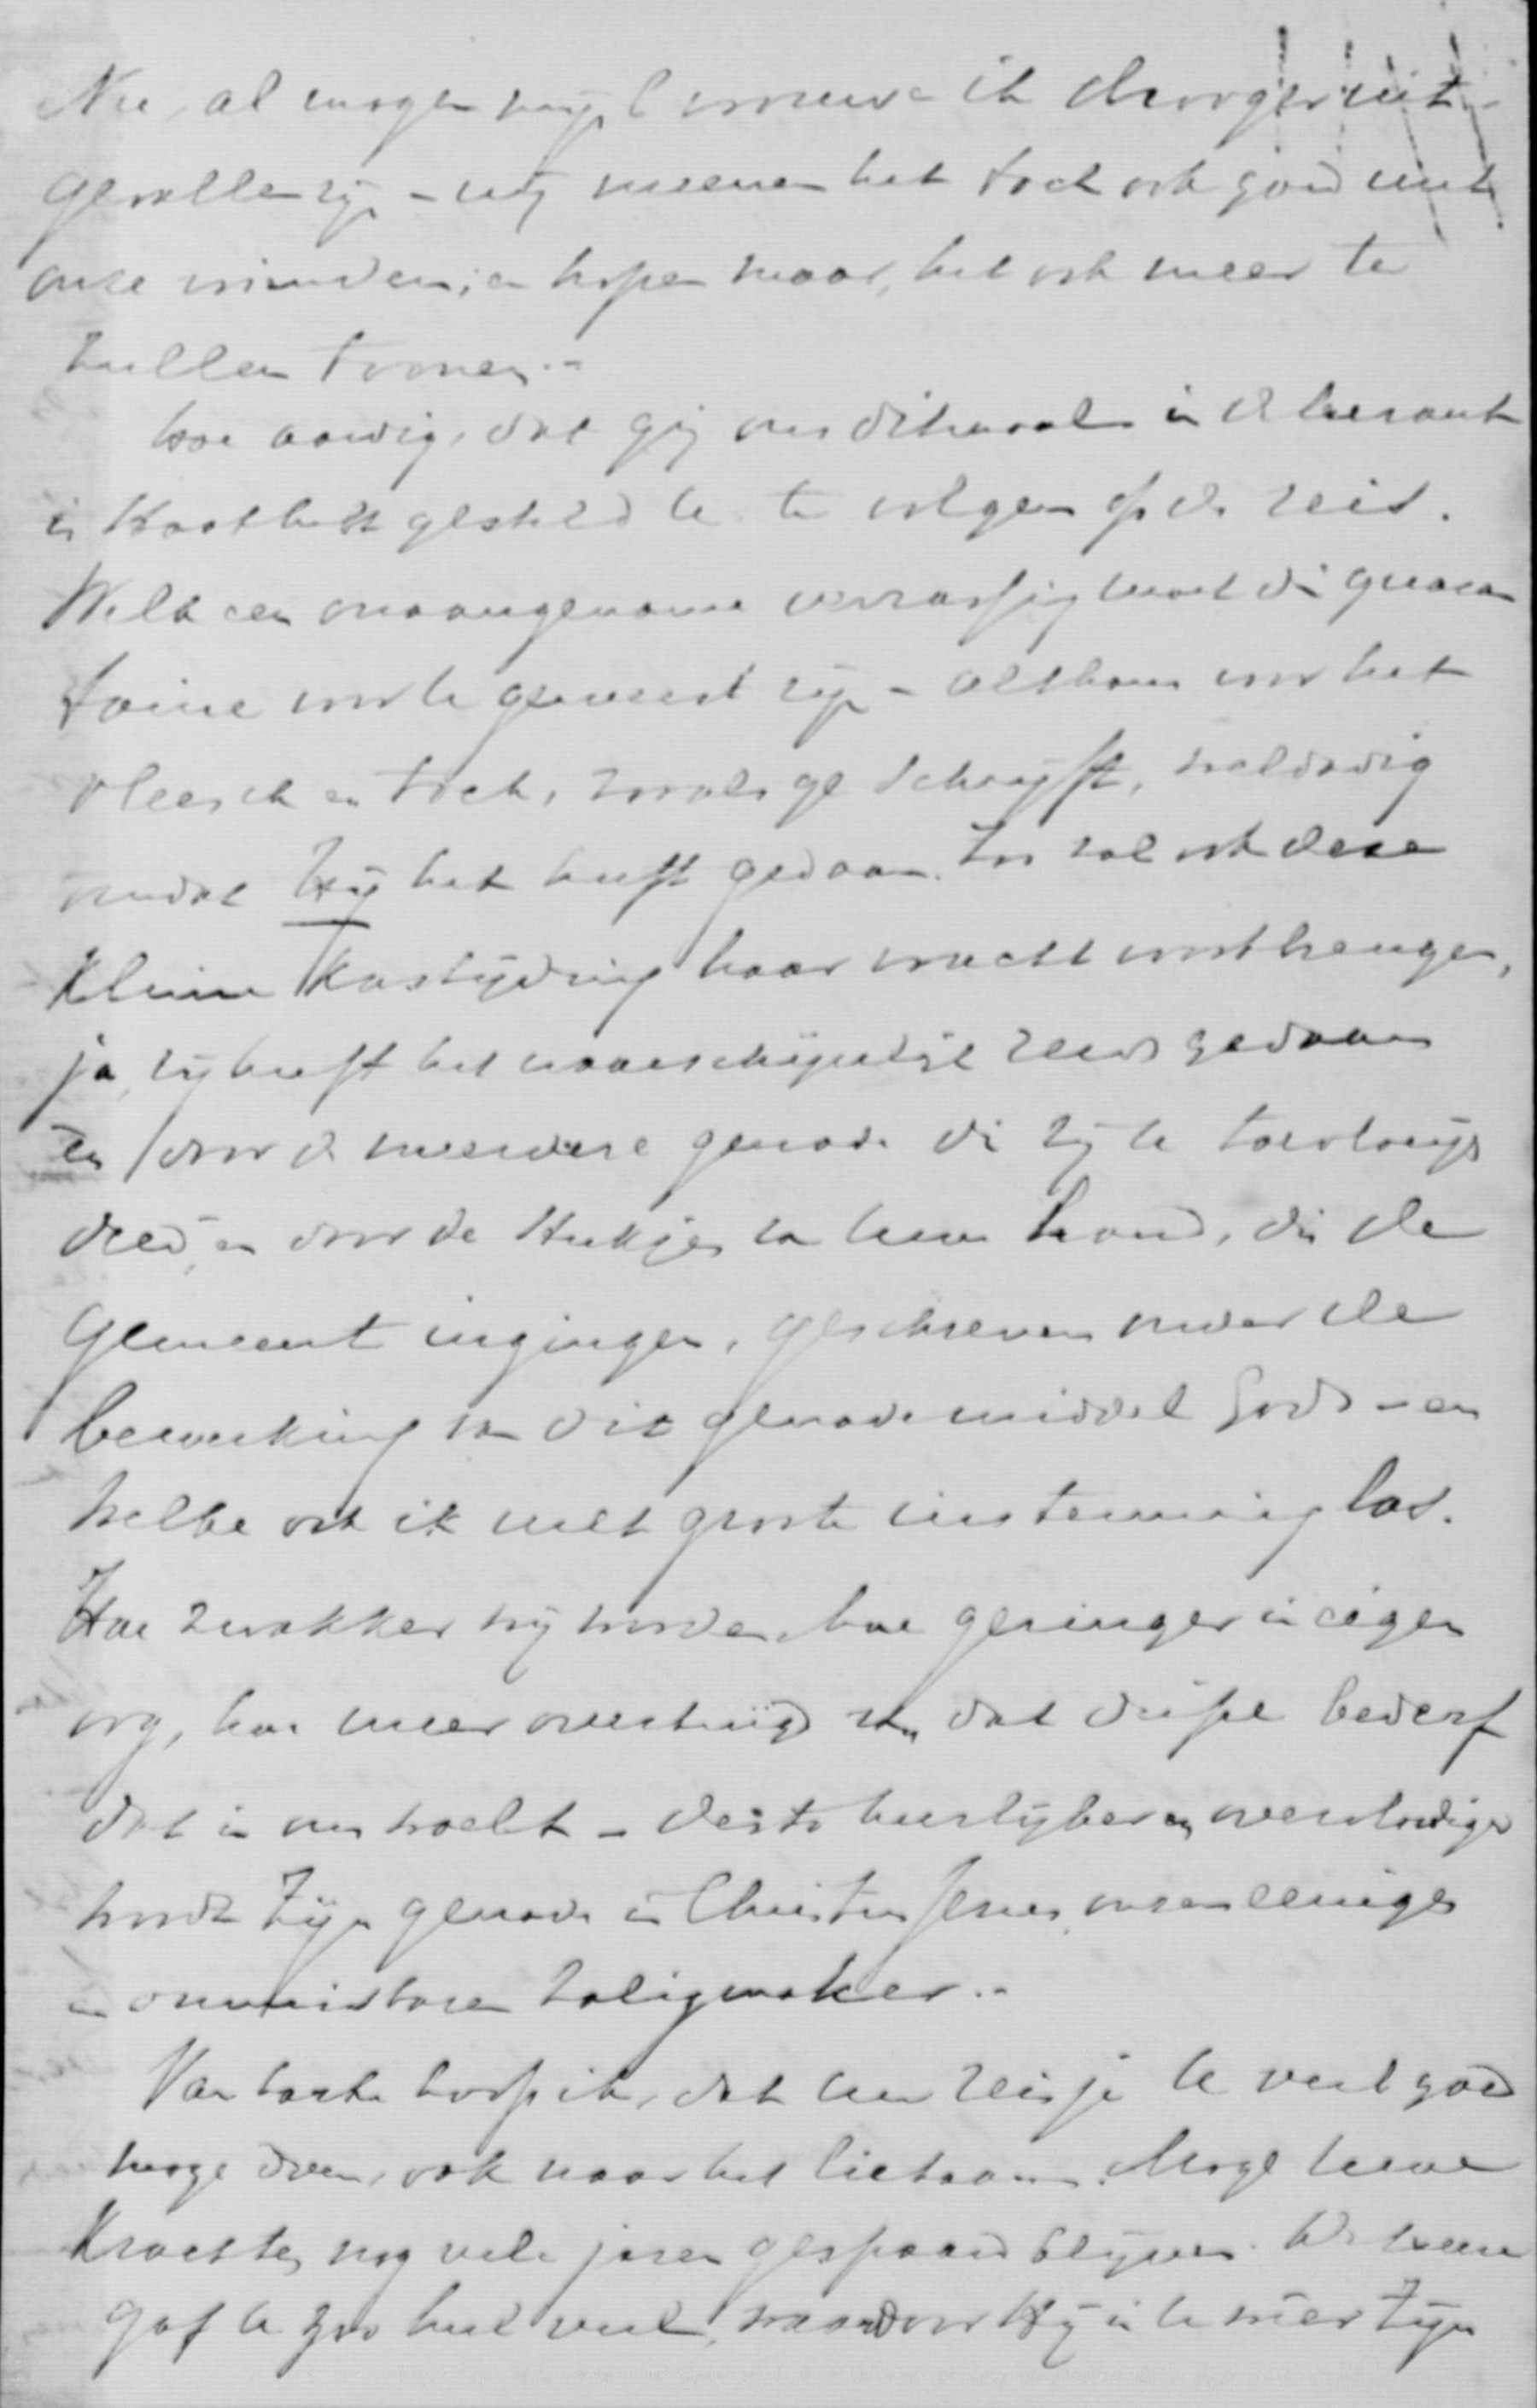 Nu, al mogen wij
gevallen zijn – wij meenen het toch ook goed met
onze vrienden, en hopen maar, het ook meer te
zullen toonen. –
Hoe aardig, dat gij ons ditmaal in de courant
in staat hebt gesteld U te volgen op de reis.
Welk een onaangename verrassing moet die quaran
taine voor U geweest zijn – althans voor het
vleesch en toch, zooals ge schrijft, weldadig
omdat Hij het heeft gedaan. Zoo zal ook deze
kleine kastijding haar vrucht voortbrengen,
ja, zij heeft het waarschijnlijk reeds gedaan
en door de meerdere genade die zij U
deed, en door de stukjes van Uwe hand, die de
gemeente ingingen, geschreven onder de
bewerking van dit genademiddel Gods – en
welke ook ik met groote instemming las.
Hoe zwakker wij worden, hoe geringer in eigen
oog, hoe meer overtuigd van dat diepe bederf
dat in ons woelt – des te heerlijker en overvloediger
wordt Zijn genade in Christus Jezus, onzen eenigen
en onmisbaren Zaligmaker. –
Van harte hoop ik, dat Uw reisje U veel goed
moge doen, ook naar het lichaam. Moge Uwe
krachten nog vele jaren gespaard blijven. De Heere
gaf U zoo heel veel, waardoor Hij in U weer Zijn